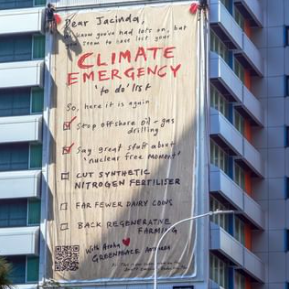 Dear Jacinda,
know you've had lots on, but
seem to have lost your
CLIMATE
EMERGENCY
'to do' list
So, here it is again
Stop offshore oil + gas
drilling
Say great stuff about
'nuclear free moment'
CUT SYNTHETIC
NITROGEN FERTILISER
FAR FEWER DAIRY COWS
BACK REGENERATIVE
FARMING
With Aroha
GREENPEACE Aotearoa